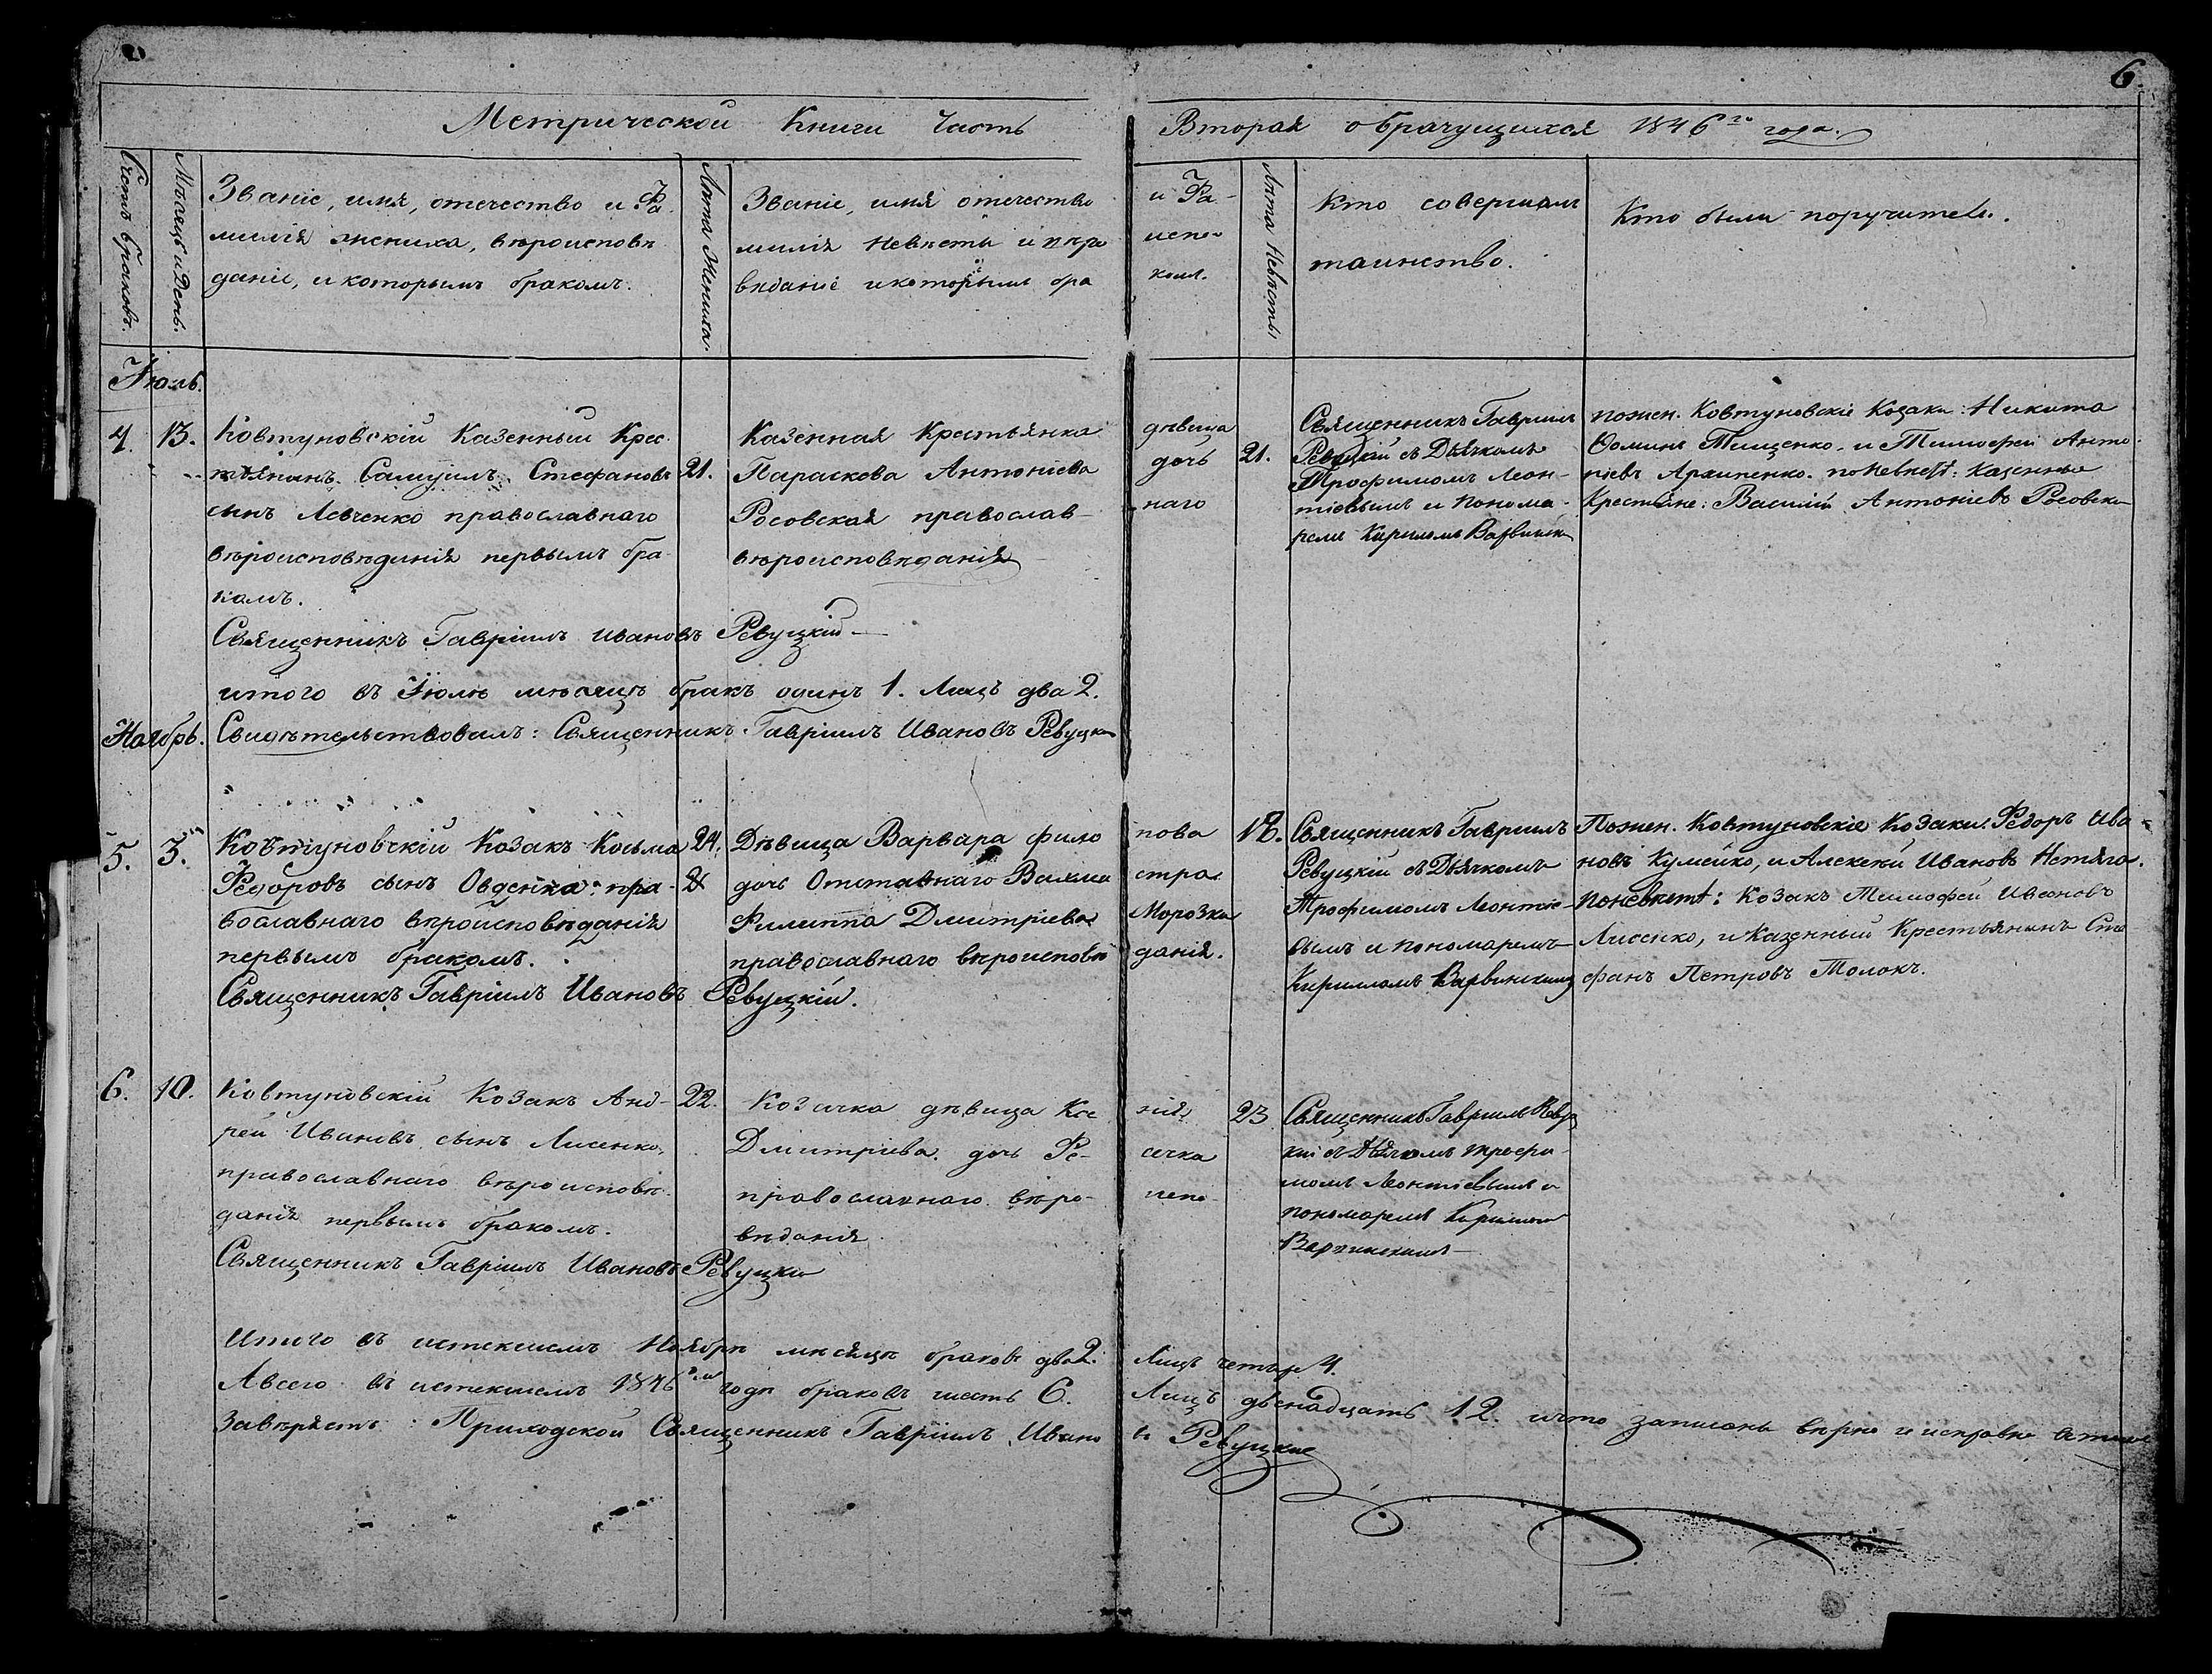 6.
Метрической Книги Часть Вторая о брачущихся 1846го года.
Счетъ браковъ.
Мѣсяцъ и День.
Званіе, имя, отечество и Фа-
милія жениха, вѣроисповѣ
даніе, и которымъ бракомъ.
Лѣта Жениха.
Званіе, имя отечество и Фа-
милія Невѣсты и вѣро испо-
вѣданіе и которымъ бра комъ.
Лѣта Невѣсты
Кто совершалъ
таинство.
Кто были поручители.
Іюль.
4. 13.
Ковтуновскій Казенный Крес
тьянинъ Самуилъ Стефановъ
сынъ Левченко православнаго
вѣроисповѣданія первымъ бра
комъ.
21.
Казенная Крестьянка дѣвица
Параскова Антоніева дочь
Росовская православ- наго
вѣроисповѣданія
21.
Священникъ Гавріилъ
Ревуцкій съ Дьячкомъ
Трофимомъ Леон-
тіевымъ и Понома-
ремъ Кириломъ
пожен. Ковтуновскіе Козаки: Никита
Ѳоминъ Тищенко. и Тимофей Анто-
ніевъ Архипенко. поневѣст: Казенные
Крестьяне: Василій Антоніевъ
Священникъ Гавріилъ Ивановъ Ревуцкій
итого въ Іюлѣ мѣсяцѣ бракъ одинъ 1. Лицъ два 2.
Ноябрь.
Свидѣтельствовалъ: Священникъ Гавріилъ Ивановъ Ревуцкій
5. 3.
Ковтуновскій Козакъ Косьма
Федоровъ сынъ Овденко пра-
вославнаго вѣроисповѣданія
первымъ бракомъ.
24.
Дѣвица Варвара Фили пова
дочь Отставнаго Вахми стра
Филиппа Дмитріева Морозка
православнаго вѣроисповѣ данія.
18.
Священникъ Гавріилъ
Ревуцкій съ Дьячкомъ
Трофимомъ Леонтіе-
вымъ и пономаремъ
Кирилломъ Варвинскимъ
Пожен. Ковтуновскіе Козаки. Федоръ Ива-
новъ Кулейко, и Алексѣй Ивановъ Нетяга.
поневѣст: Козакъ Тимофей Ивановъ
Лисенко, и Казенный Крестьянинъ Сте
фанъ Петровъ Толокъ.
Священникъ Гавріилъ Ивановъ Ревуцкій.
6. 10.
Ковтуновскій Козакъ Анд-
рей Ивановъ сынъ Лисенко,
православнаго вѣроисповѣ-
данія первымъ бракомъ.
22.
Козачка дѣвица Ксе нія
Дмитріева дочь
православнаго вѣро-
вѣданія
23
Священникъ Гавріилъ Ревуц
кій съ Дьячкомъ Трофи-
момъ Леонтіевымъ и
пономаремъ Кириломъ
Варвинскимъ
Священникъ Гавріилъ Ивановъ Ревуцкій
Итого въ истекшемъ Ноябрѣ мѣсяцѣ браковъ два 2. Лицъ четыре 4.
А всего въ истекшемъ 1846 годѣ браковъ шесть 6. Лицъ двѣнадцать 12. что записаны вѣрно и исправно
Завѣряетъ: Приходской Священникъ Гавріилъ Ивано въ Ревуцкій